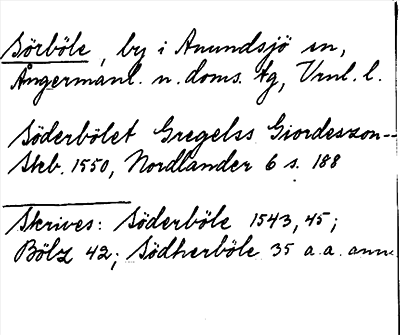 Sörböle, by i Anundsjö sn,
Ångermanl. n. doms. tg, Vrnl. l.
Söderbölet Gregelss Giordeszon--
Skb. 1550, Nordlander 6 s. 188
Skrives: Söderböle 1543, 45;
Bölz 42; Södherböle 35 a.a. anm.